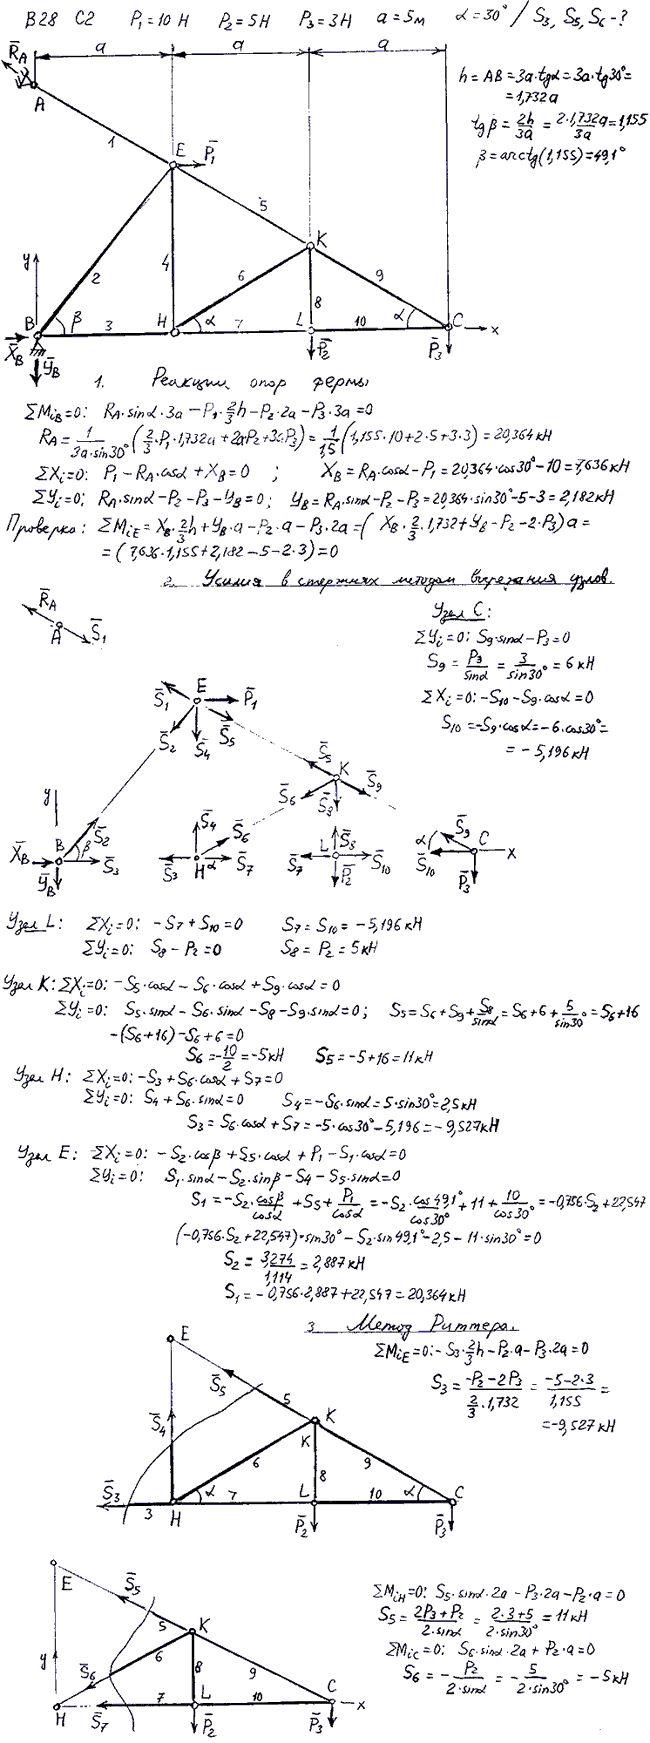 B28 C2 P₁=10 H P₂=5H P₃=3H a=5м α=30° / S₃, S₅, S₆-?
R̄A a a a
h = AB = 3a·tgα = 3a·tg30° =
= 1,732a
A
tgβ = 2h/3a = 2·1,732a/3a = 1,155
β = arctg(1,155) = 49,1°
1 E P̄₁
5
y 2 4 K
6 8 9
B β 3 H α 7 L 10 α C x
X̄B ȲB P̄₂ P̄₃
1. Реакции опор фермы
ΣMiB=0: RA·sinα·3a − P₁·2/3h − P₂·2a − P₃·3a = 0
RA = 1/(3a·sin30°) (2/3·P₁·1,732a + 2aP₂ + 3aP₃) = 1/1,5 (1,155·10 + 2·5 + 3·3) = 20,364 кН
ΣXi=0: P₁ − RA·cosα + XB = 0 ; XB = RA·cosα − P₁ = 20,364·cos30° − 10 = 7,636 кН
ΣYi=0: RA·sinα − P₂ − P₃ − YB = 0; YB = RA·sinα − P₂ − P₃ = 20,364·sin30° − 5 − 3 = 2,182 кН
Проверка: ΣMiE = XB·2/3h + YB·a − P₂·a − P₃·2a = ( XB·2/3·1,732 + YB − P₂ − 2·P₃ ) a =
= ( 7,636·1,155 + 2,182 − 5 − 2·3 ) = 0
2. Усилия в стержнях методом вырезания узлов.
R̄A A S̄₁
Узел C:
ΣYi=0: S₉·sinα − P₃ = 0
S₉ = P₃/sinα = 3/sin30° = 6 кН
ΣXi=0: −S₁₀ − S₉·cosα = 0
S₁₀ = −S₉·cosα = −6·cos30° =
= −5,196 кН
S̄₁ E P̄₁
S̄₂ S̄₄ S̄₅
S̄₅ K S̄₉
S̄₆ S̄₈
y
X̄B B β S̄₂ S̄₃ ȲB
S̄₄ S̄₆ S̄₃ H α S̄₇
S̄₈ S̄₇ L S̄₁₀ P̄₂
α S̄₉ C x S̄₁₀ P̄₃
Узел L: ΣXi=0: −S₇ + S₁₀ = 0 S₇ = S₁₀ = −5,196 кН
ΣYi=0: S₈ − P₂ = 0 S₈ = P₂ = 5 кН
Узел K: ΣXi=0: −S₅·cosα − S₆·cosα + S₉·cosα = 0
ΣYi=0: S₅·sinα − S₆·sinα − S₈ − S₉·sinα = 0; S₅ = S₆ + S₉ + S₈/sinα = S₆ + 6 + 5/sin30° = S₆ + 16
−(S₆ + 16) − S₆ + 6 = 0
S₆ = −10/2 = −5 кН S₅ = −5 + 16 = 11 кН
Узел H: ΣXi=0: −S₃ + S₆·cosα + S₇ = 0
ΣYi=0: S₄ + S₆·sinα = 0 S₄ = −S₆·sinα = 5·sin30° = 2,5 кН
S₃ = S₆·cosα + S₇ = −5·cos30° − 5,196 = −9,527 кН
Узел E: ΣXi=0: −S₂·cosβ + S₅·cosα + P₁ − S₁·cosα = 0
ΣYi=0: S₁·sinα − S₂·sinβ − S₄ − S₅·sinα = 0
S₁ = −S₂·cosβ/cosα + S₅ + P₁/cosα = −S₂·cos49,1°/cos30° + 11 + 10/cos30° = −0,756·S₂ + 22,547
(−0,756·S₂ + 22,547)·sin30° − S₂·sin49,1° − 2,5 − 11·sin30° = 0
S₂ = 3,274/1,114 = 2,887 кН
S₁ = −0,756·2,887 + 22,547 = 20,364 кН
3 Метод Риттера.
ΣMiE=0: −S₃·2/3h − P₂·a − P₃·2a = 0
S₃ = (−P₂ − 2P₃)/(2/3·1,732) = (−5 − 2·3)/1,155 =
= −9,527 кН
E
S̄₅ 5
S̄₄ K
K
6 8 9
S̄₃ 3 H α 7 L 10 α C
P̄₂ P̄₃
E
S̄₅ 5 K
y S̄₆ 6 8 9
H S̄₇ 7 L 10 C x
P̄₂ P̄₃
ΣMiH=0: S₅·sinα·2a − P₃·2a − P₂·a = 0
S₅ = (2P₃ + P₂)/(2·sinα) = (2·3 + 5)/(2·sin30°) = 11 кН
ΣMiC=0: S₆·sinα·2a + P₂·a = 0
S₆ = −P₂/(2·sinα) = −5/(2·sin30°) = −5 кН